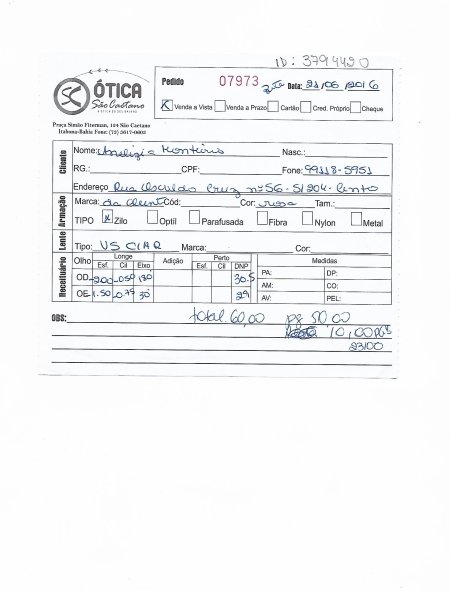 ID: 3794420
ÓTICA
São Caetano
Praça Simão Fiterman, 194 São Caetano
Itabuna-Bahia Fone: (73) 3617-0603
Pedido 07973 Data: 21/06/2016
X Venda a Vista Venda a Prazo Cartão Cred. Próprio Cheque
Cliente
Nome: Monteiro Nasc.:
RG.: CPF: Fone: 99118-5951
Endereço Rua Cruz nº 56 - S/204 - Cento
Armação
Marca: da Client Cód: Cor: rosa Tam.:
TIPO X Zilo Optil Parafusada Fibra Nylon Metal
Lente
Tipo: VS CIAR Marca: Cor:
Receituário
Olho Longe Adição Perto Medidas
Esf. Cil Eixo Esf. Cil DNP
OD -2.00 -0.50 130 30.5 PA: DP:
AM: CO:
OE -1.50 -0.75 30 29 AV: PEL:
OBS: total 60,00 pg 50,00
10,00
23/00